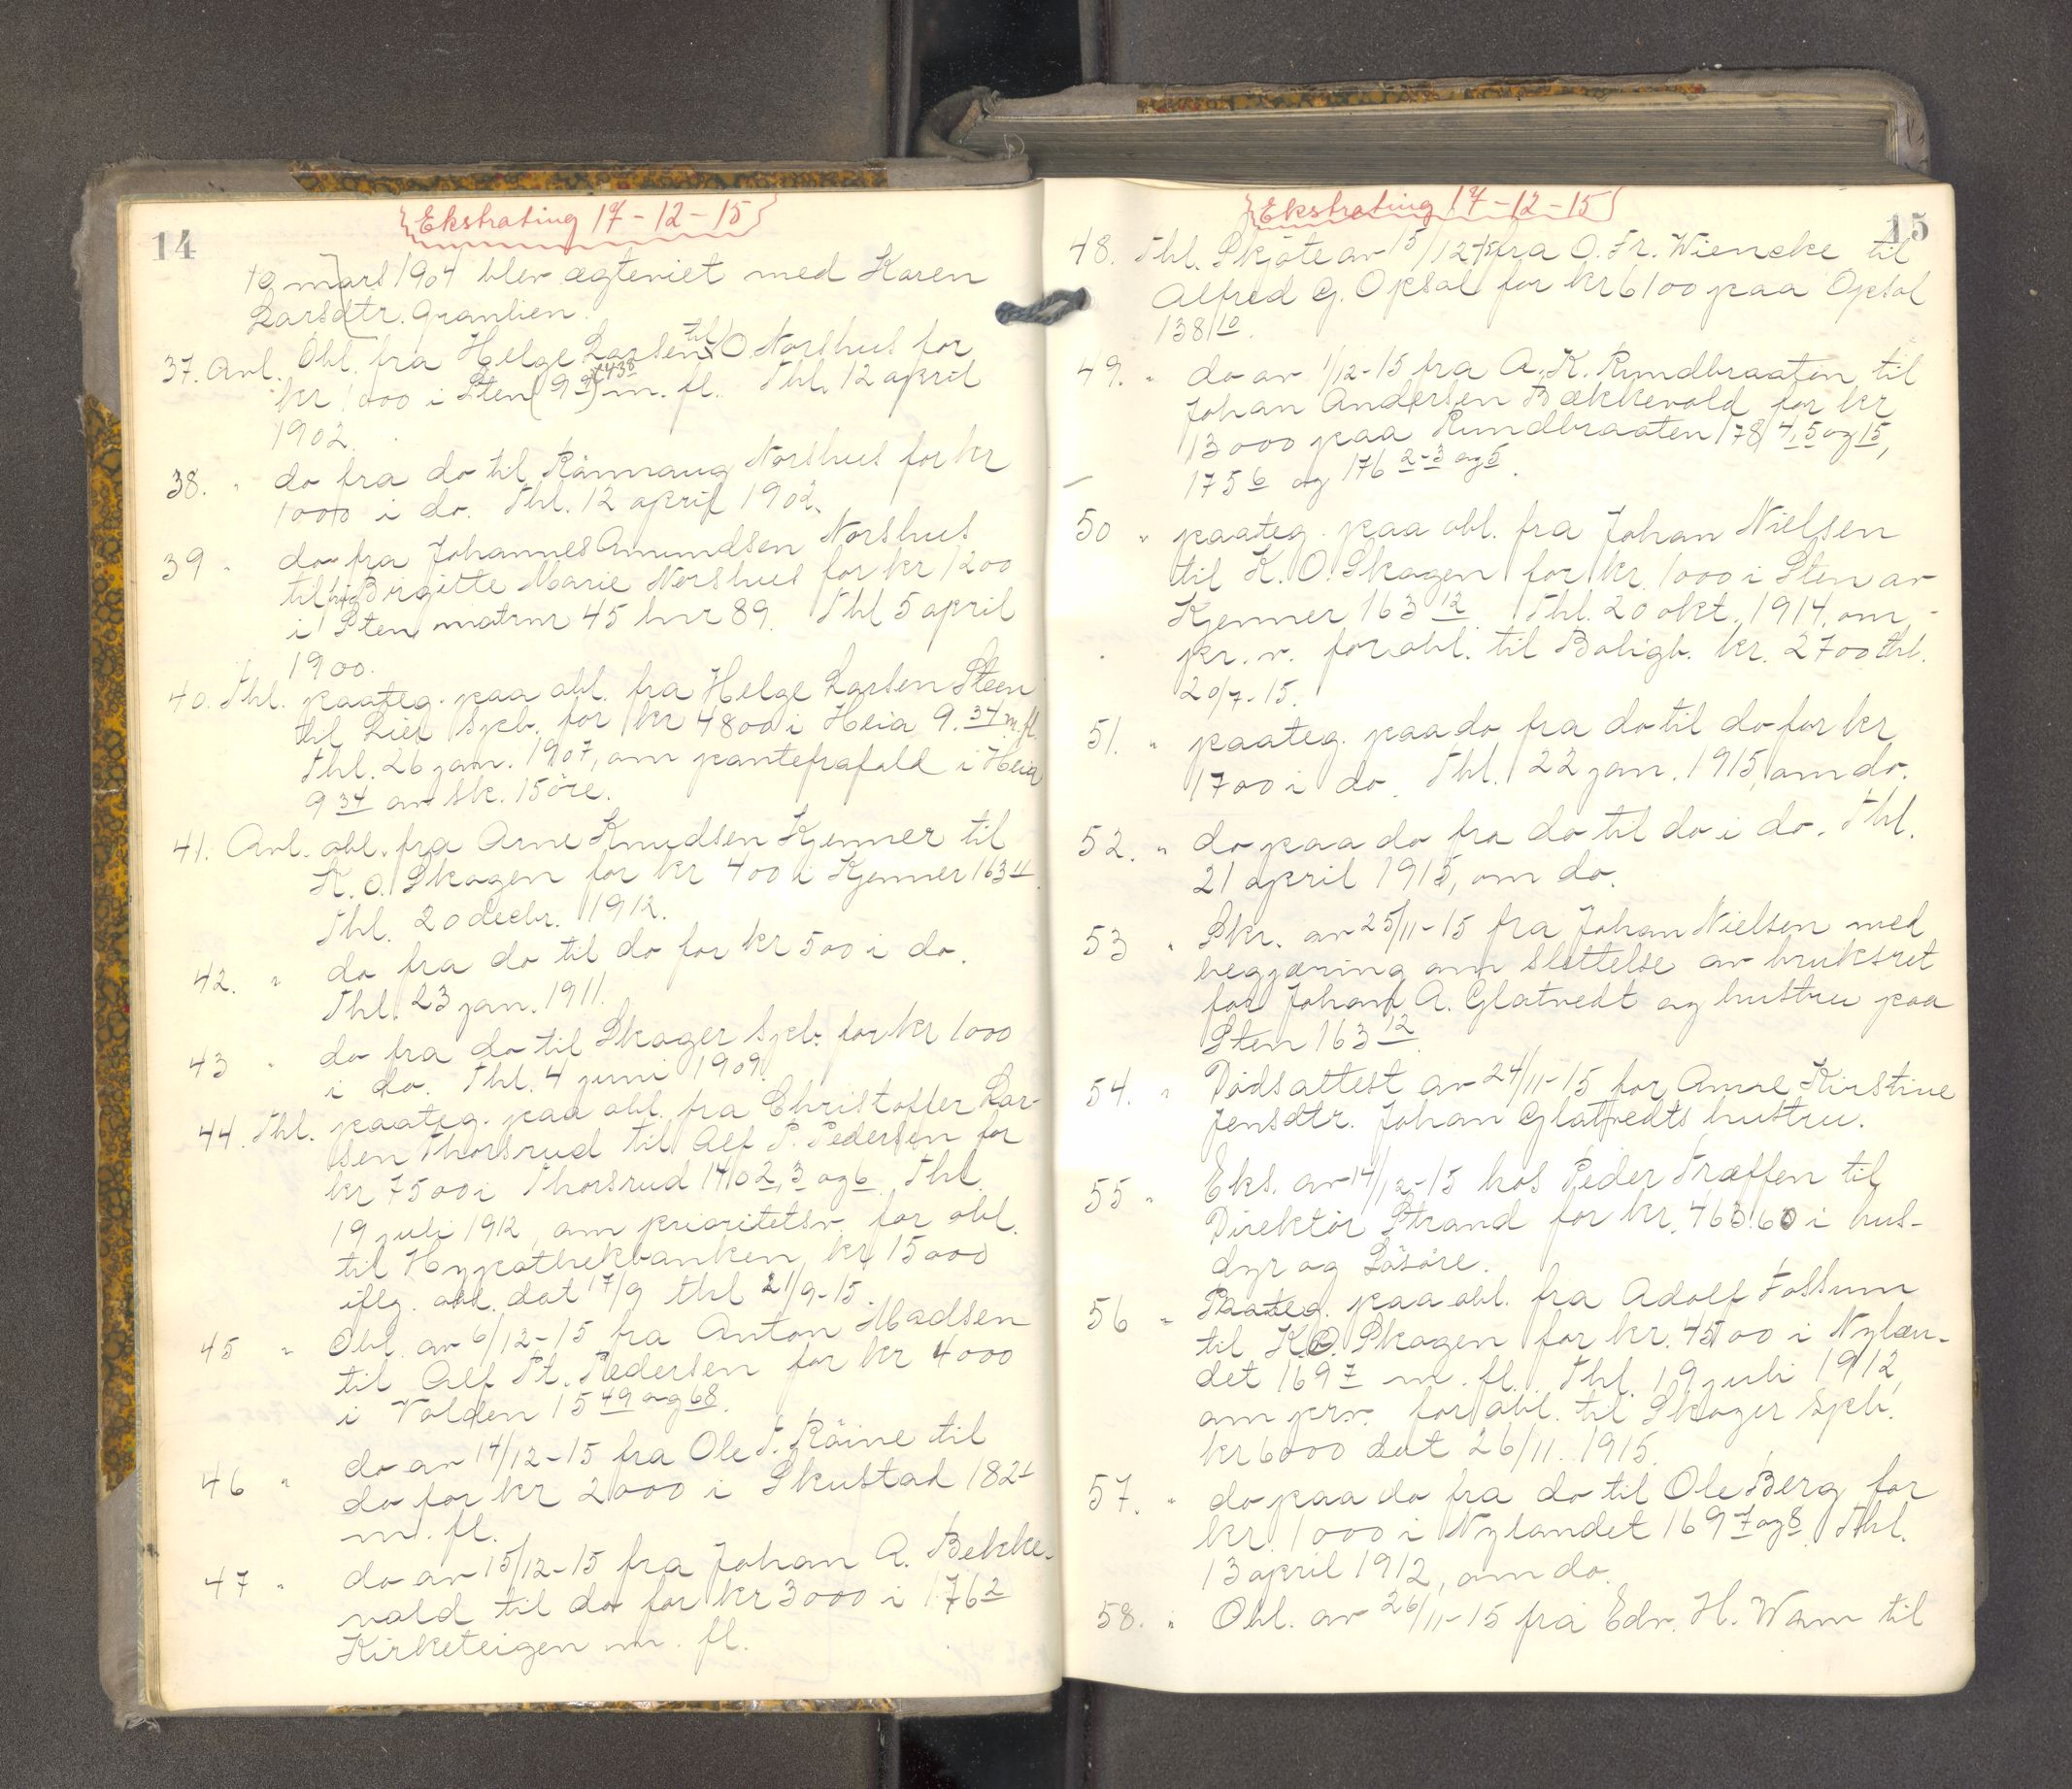 14
Ekstrating 17-12-15
19 mars 1904 blev ægteviet med Karen
Larsdtr. Granlien.
37. Avl. Obl. fra Helge Larsen til O Norshus for
kr 1000 i Sten (9 34 438) m. fl. Thl. 12 april
1902.
38. " do fra do til Rönnaug Norshus for kr
1000 i do. Thl. 12 april 1902.
39 " do fra Johannes Amundsen Norshus
til Birgitte Marie Norshus for kr 1200
i Sten matrnr 45 lnr 89. Thl 5 april
1900.
40. Thl. paateg. paa obl. fra Helge Larsen Steen
til Lier Spb. for kr 4800 i Heia 9.34 m. fl.
Thl. 26 jan. 1907, om pantefrafald i Heia
9 34 av sk. 15 öre.
41. Avl. obl. fra Arne Knudsen Kjenner til
K. O. Skagen for kr 400 i Kjenner 163 11.
Thl. 20 decbr. 1912.
42. " do fra do til do for kr 500 i do.
Thl. 23 jan. 1911.
43 " do fra do til Skoger Spb. for kr 1000
i do. Thl. 4 juni 1909.
44. Thl. paateg. paa obl. fra Christoffer Lar-
sen Thorsrud til Alf P. Pedersen for
kr 7500 i Thorsrud 140 2, 3 og 6. Thl.
19 juli 1912, om prioritetsv. for obl.
til Hypothekbanken kr 15000
iflg. obl. dat 17/9 thl 21/9-15.
45 " Obl. av 6/12-15 fra Anton Madsen
til Alf Pt. Pedersen for kr 4000
i Volden 15 49 og 68.
46 " do av 14/12-15 fra Ole T. Röine til
do for kr 2000 i Skustad 182 1
m. fl.
47 " do av 15/12-15 fra Johan A. Bekke-
vold til do for kr 3000 i 176 2
Kirketeigen m. fl.
15
Ekstrating 17-12-15
48. Thl. Skjöte av 15/12-15 fra O. Fr. Wiencke til
Alfred G. Opsal for kr 6100 paa Opsal
138 10.
49. " do av 1/12-15 fra A. K. Rundbraaten til
Johan Andersen Bækkevold for kr
13000 paa Rundbraaten 178 4, 5 og 15,
175 6 og 176 2-3 og 5.
50 " paateg. paa obl. fra Johan Nielsen
til K. O. Skagen for kr. 1000 i Sten av
Kjenner 163 12. Thl. 20 okt. 1914, om
pr. v. for obl. til Boligb. kr. 2700 thl.
20/7-15.
51. " paateg. paa do fra do til do for kr
1700 i do. Thl. 22 jan. 1915, om do.
52. " do paa do fra do til do i do. Thl.
21 april 1915, om do.
53 " Skr. av 25/11-15 fra Johan Nielsen med
begjæring om slettelse av bruksret
for Johan A. Glatvedt og hustru paa
Sten 163 12.
54. " Dödsattest av 24/11-15 for Anne Kirstine
Jensdtr. Johan Glatvedts hustru.
55 " Eks. av 14/12-15 hos Peder Træffen til
Direktör Strand for kr. 463.60 i hus-
dyr og Lösöre.
56 " Paateg. paa obl. fra Adolf Fossum
til K. O. Skagen for kr. 4500 i Nylæn-
det 169 7 m. fl. Thl. 19 juli 1912,
om prv. for obl. til Skoger Spb.
kr 6000 dat 26/11. 1915.
57. " do paa do fra do til Ole Berg for
kr. 1000 i Nylandet 169 7 og 8. Thl.
13 april 1912, om do.
58. " Obl. av 26/11-15 fra Edv. H. Wam til